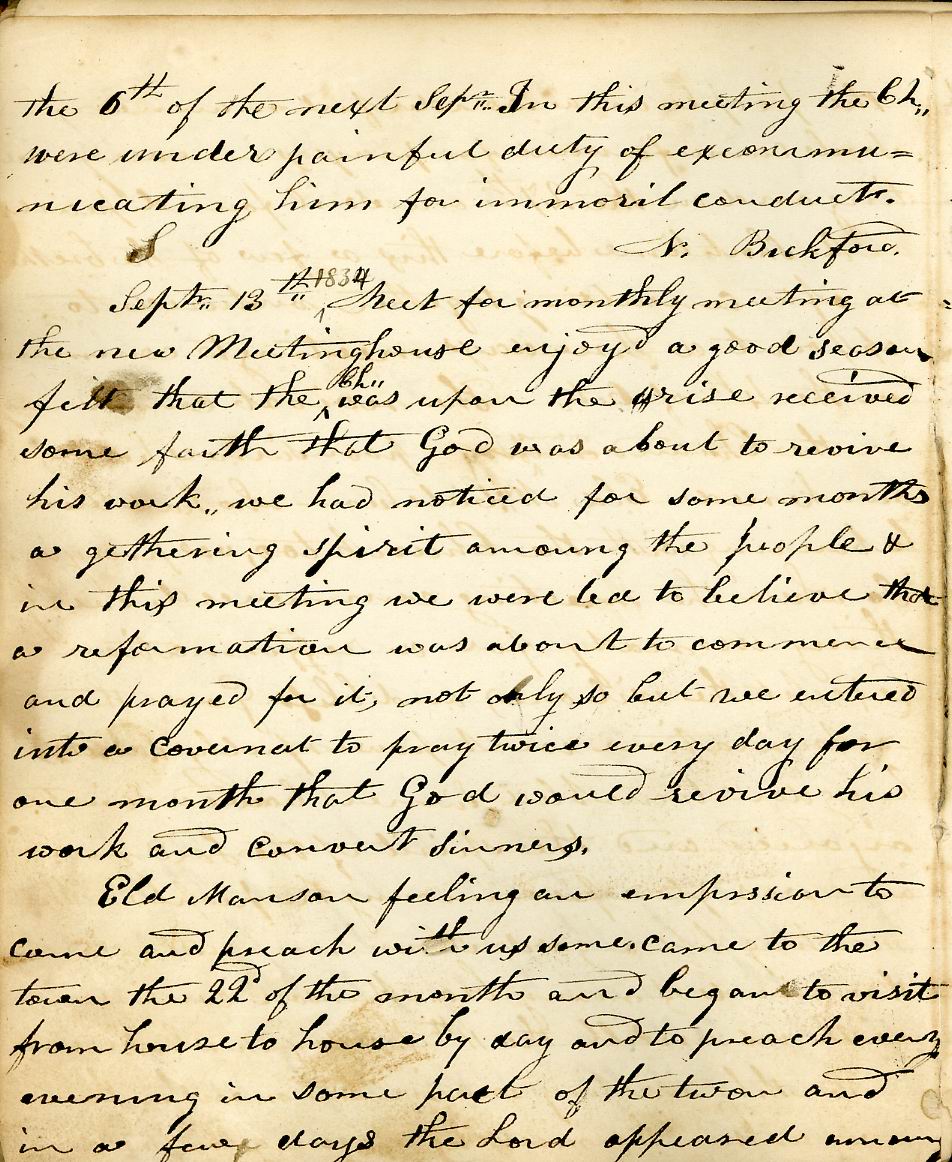 the 6th of the next Sept. In this meeting the Ch,,
were under painful duty of excommu=
nicating him for immoril conduct.
S N. Bickford.
Sept. 13th 1834 Meet for monthly meeting at
the new Meetinghouse enjoyd a good season
felt that the Ch,, was upon the arise received
some faith that God was about to revive
his work,, we had noticed for some months
a gethering spirit amoung the people &
in this meeting we were led to believe that
a reformation was about to commence
and prayed for it, not only so but we entered
into a covernat to pray twice every day for
one month that God would revive his
work and convert sinners.
Eld Manson feeling an emprssion to
come and preach with us some. came to the
town the 22d of the month and began to visit
from house to house by day and to preach every
evening in some part of the twon and
in a few days the Lord appeared among